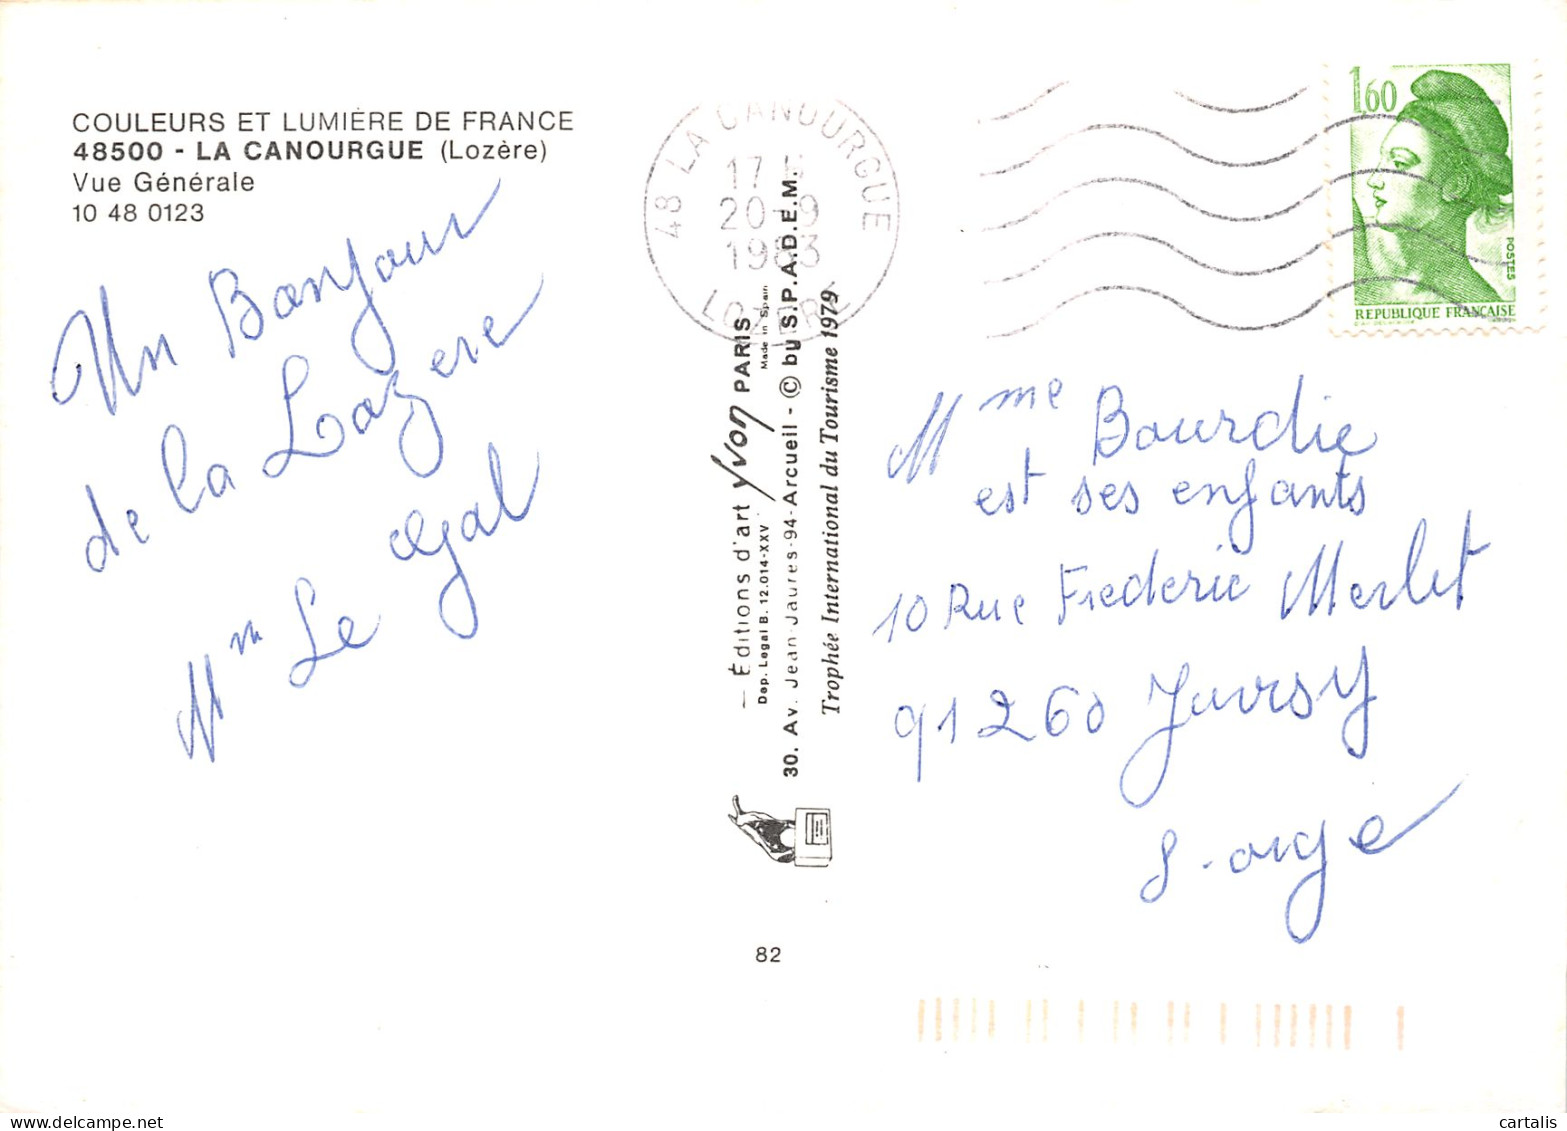 COULEURS ET LUMIÈRE DE FRANCE
48500 - LA CANOURGUE (Lozère)
Vue Générale
10 48 0123
Un Bonjour
de la Lozere
Mm Le Gal
48 LA CANOURGUE
17 H
20-9
1983
LOZERE
— Éditions d'art Yvon PARIS
Dep. Legal B. 12.014-XXV
Made in Spain
30. Av. Jean-Jaures-94-Arcueil - © by S.P.A.D.E.M.
Trophée International du Tourisme 1979
82
1,60
POSTES
REPUBLIQUE FRANÇAISE
Mme Bourdie
est ses enfants
10 Rue Frederic Merlet
91260 Juvisy
S-orge
cartalis